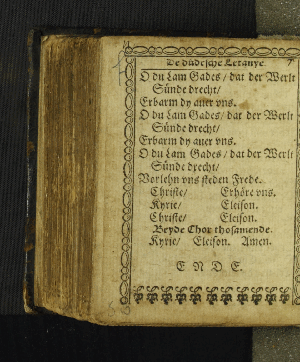 De düdesche Letanye.
O du Lam Gades/ dat der Werlt
Sünde drecht/
Erbarm dy auer vns.
O du Lam Gades/ dat der Werlt
Sünde drecht/
Erbarm dy auer vns.
O du Lam Gades/ dat der Werlt
Sünde drecht/
Vorlehn vns steden Frede.
Christe/ Erhöre vns.
Kyrie/ Eleison.
Christe/ Eleison.
Beyde Chor thosamende.
Kyrie/ Eleison. Amen.
E N D E.